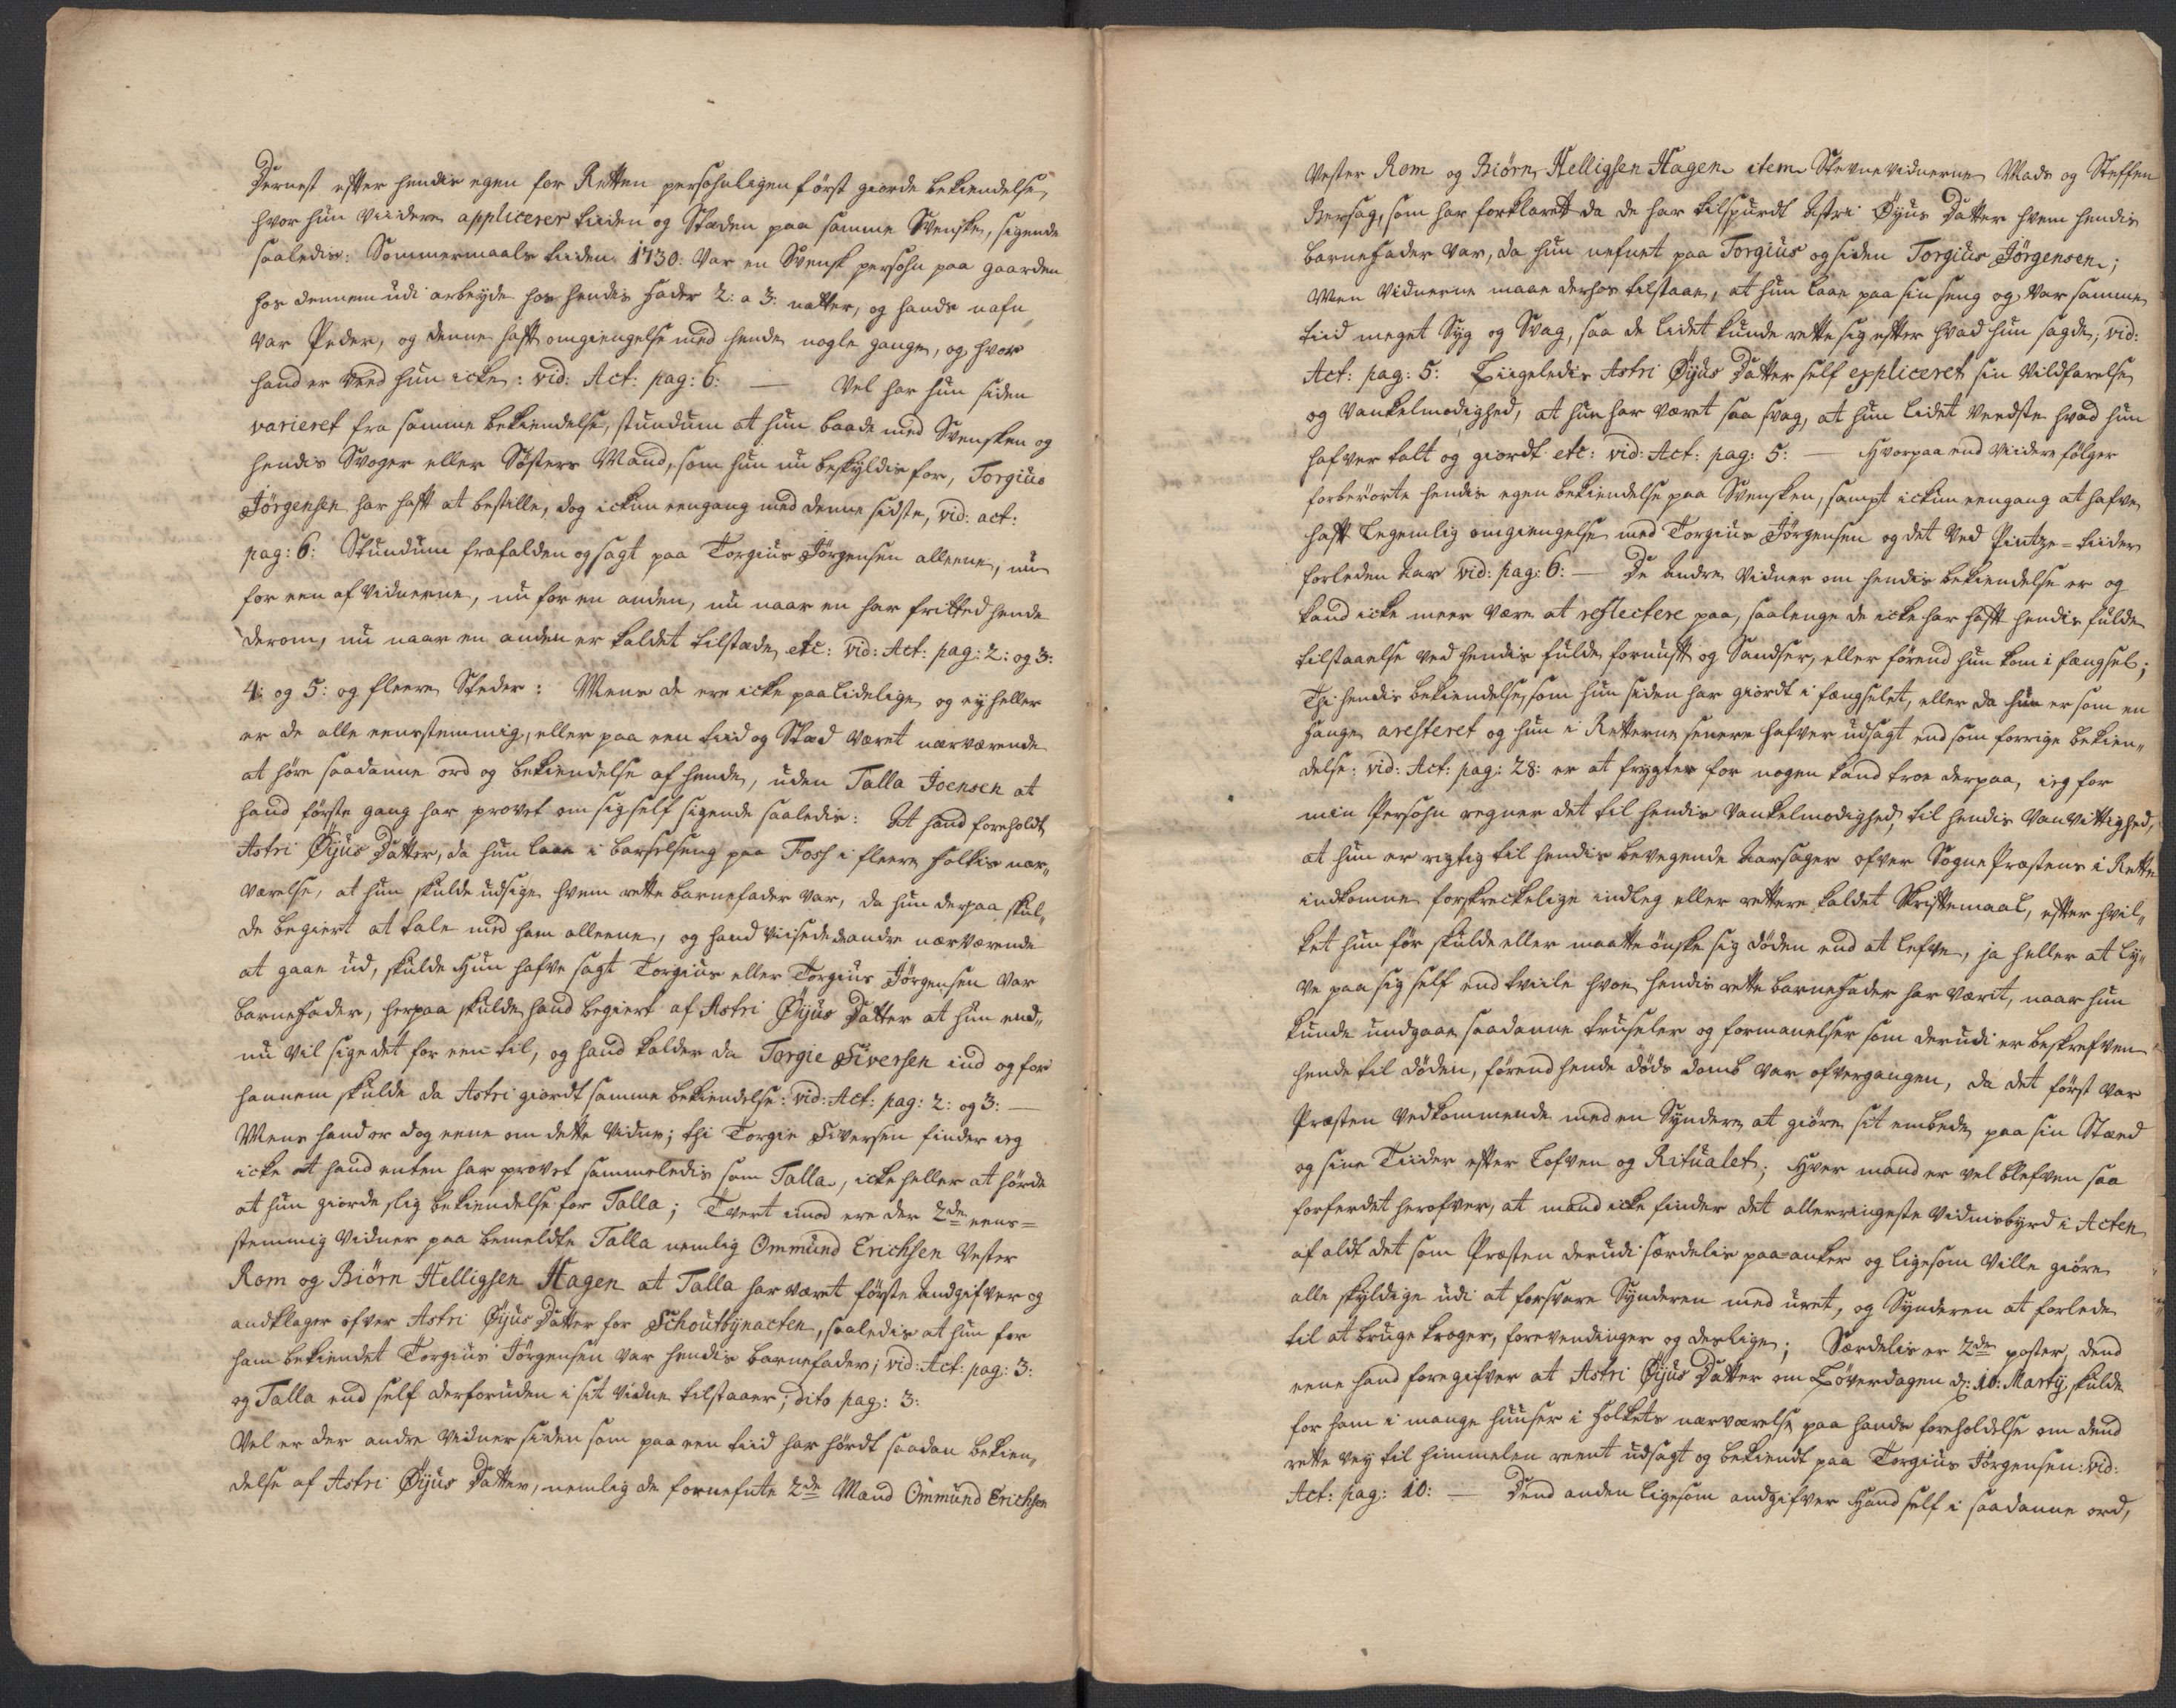 Dernest efter hendis egen for Retten persohnligen först giorde bekiendelse,
hvor hun viidere applicerer tiiden og Stæden paa samme Svenske, sigende
saaledis: Sommermaals tiiden 1730: var en Svensk persohn paa gaarden
hos dennem udi arbeyde hos hendis fader 2: a 3: nætter, og hands nafn
var Peder, og denne haft omgiengelse med hende nogle gange, og hvor
hand er veed hun icke: vid: Act: pag: 6: — Vel har hun siden
varieret fra samme bekiendelse, stundum at hun baade med Svensken og
hendis Svoger eller Søsters Mand, som hun nu beskyldis for, Torgius
Jörgensen har haft at bestille, dog ickun eengang med denne sidste, vid: act:
pag: 6: Stundum frafalden og sagt paa Torgius Jörgensen alleene, nu
for een af vidnerne, nu for en anden, nu naar en har fritted hende
derom, nu naar en anden er kaldet tilstæde, etc: vid: Act: pag: 2: og 3:
4: og 5: og fleere Steder: Mens de ere icke paalidelige, og ey heller
er de alle eenstemmig, eller paa een tiid og Stæd været nærværende
at höre saadanne ord og bekiendelse af hende, uden Talla Joensen at
hand förste gang har provet om sig self sigende saaledis: At hand foreholdt
Astri Öÿus Datter, da hun laae i barselseng paa Foss i fleere folkis nær„
værelse, at hun skulde udsige hvem rette barnefader var, da hun derpaa skul„
de begiert at tale med ham alleene, og hand viisede de andre nærværende
at gaae ud, skulde Hun hafve sagt Torgius eller Torgius Jörgensen var
barnefader, herpaa skulde hand begiert af Astri Öÿus Datter at hun end„
nu vil sige det for een til, og hand kalder da Torgie Siversen ind og for
hannem skulde da Astri giordt samme bekiendelse: vid: Act: pag: 2: og 3: —
Mens hand er dog eene om dette vidne; thi Torgie Siversen finder ieg
icke at hand enten har provet sammeledis som Talla, icke heller at hörde
at hun giorde slig bekiendelse for Talla; Tvert imod ere der 2de eens=
stemmig vidner paa bemeldte Talla nemlig Ommund Erichsen Vester
Rom og Biörn Helligsen Hagen at Talla har været förste Andgifver og
andklager ofver Astri Öÿus Datter for Schoutbÿnacten, saaledis at hun for
ham bekiendet Torgius Jörgensen var hendis barnefader; vid: Act: pag: 3:
og Talla end self derforuden i sit vidne tilstaaer; dito pag: 3:
Vel er der andre vidner siden som paa een tiid har hördt saadan bekien„
delse af Astri Öÿus Datter, nemlig de fornefnte 2de Mænd Ommund Erichsen
Vester Rom og Biörn Helligsen Hagen item Stevnevidnerne Mads og Steffen
Bersag, som har forklaret da de har tilspurdt Astri Öyus Datter hvem hendis
barnefader var, da hun nefnet paa Torgius og siden Torgius Jörgensen;
Men vidnerne maae derhos tilstaae, at hun laae paa sin seng og var samme
tiid meget Syg og Svag, saa de lidet kunde rette sig efter hvad hun sagde; vid:
Act: pag: 5: Liigeledis Astri Öÿus Datter self expliceret sin vildfarelse
og Vankelmodighed, at hun har været saa svag, at hun lidet vendste hvad hun
hafver talt og giordt etc: vid: Act: pag: 5: — Hvorpaa end viidere fölger
forberörte hendis egen bekiendelse paa Svensken, sampt ickun eengang at hafve
haft Legemlig omgiengelse med Torgius Jörgensen og det ved Pintze=tiider
forleden Aar vid: pag: 6: — De andre vidner om hendis bekiendelse er og
kand icke meer være at reflectere paa, saalenge de icke har haft hendis fulde
tilstaaelse ved hendis fulde fornuft og Sandser, eller förend hun kom i fængsel;
Thi hendis bekiendelse, som hun siden har giordt i fængselet, eller da hun er som en
fange aresteret og hun i Retterne senere hafver udsagt end som forrige bekien„
delse: vid: Act: pag: 28: er at frygter for nogen kand troe derpaa, ieg for
min Persohn regner det til hendis vankelmodighed, til hendis vanvittighed,
at hun er rigtig til hendis bevegende Aarsager ofver Sogne Præstens i Rette
indkomne forskreckelige indleg eller rettere kaldet Skriftemaal, efter hvil„
ket hun för skulde eller maatte önske sig döden end at lefve, ja heller at ly„
ve paa sig self end tviile hvoe hendis rette barnefader har værit, naar hun
kunde undgaae saadanne truseler og formanelser som derudi er beskrefven
hende til döden, förend hende döds domb var ofvergangen, da det först var
Præsten vedkommende med en Syndere at giöre sit embede paa sin Stæd
og sine Tiider efter Lofven og Ritualet; Hver mand er vel blefven saa
forferdet herofver, at mand icke finder det allerringeste vidnisbyrd i Acten
af aldt det som Præsten derudi særdelis paa=anker og ligesom ville giöre
alle skyldige udi at forsvare Synderen med uret, og Synderen at forlede
til at bruge kroger, forevendinger og deslige; Særdelis er 2de poster, dend
eene hand foregifver at Astri Öÿus Datter om Löverdagen d: 10: Martÿ skulde
for ham i mange huuser i folkets nærværelse paa hands foreholdelse om dend
rette vey til himmelen reent udsagt og bekiendt paa Torgius Jörgensen: vid:
Act: pag: 10: — Dend anden ligesom andgifver Hand self i saadanne ord,